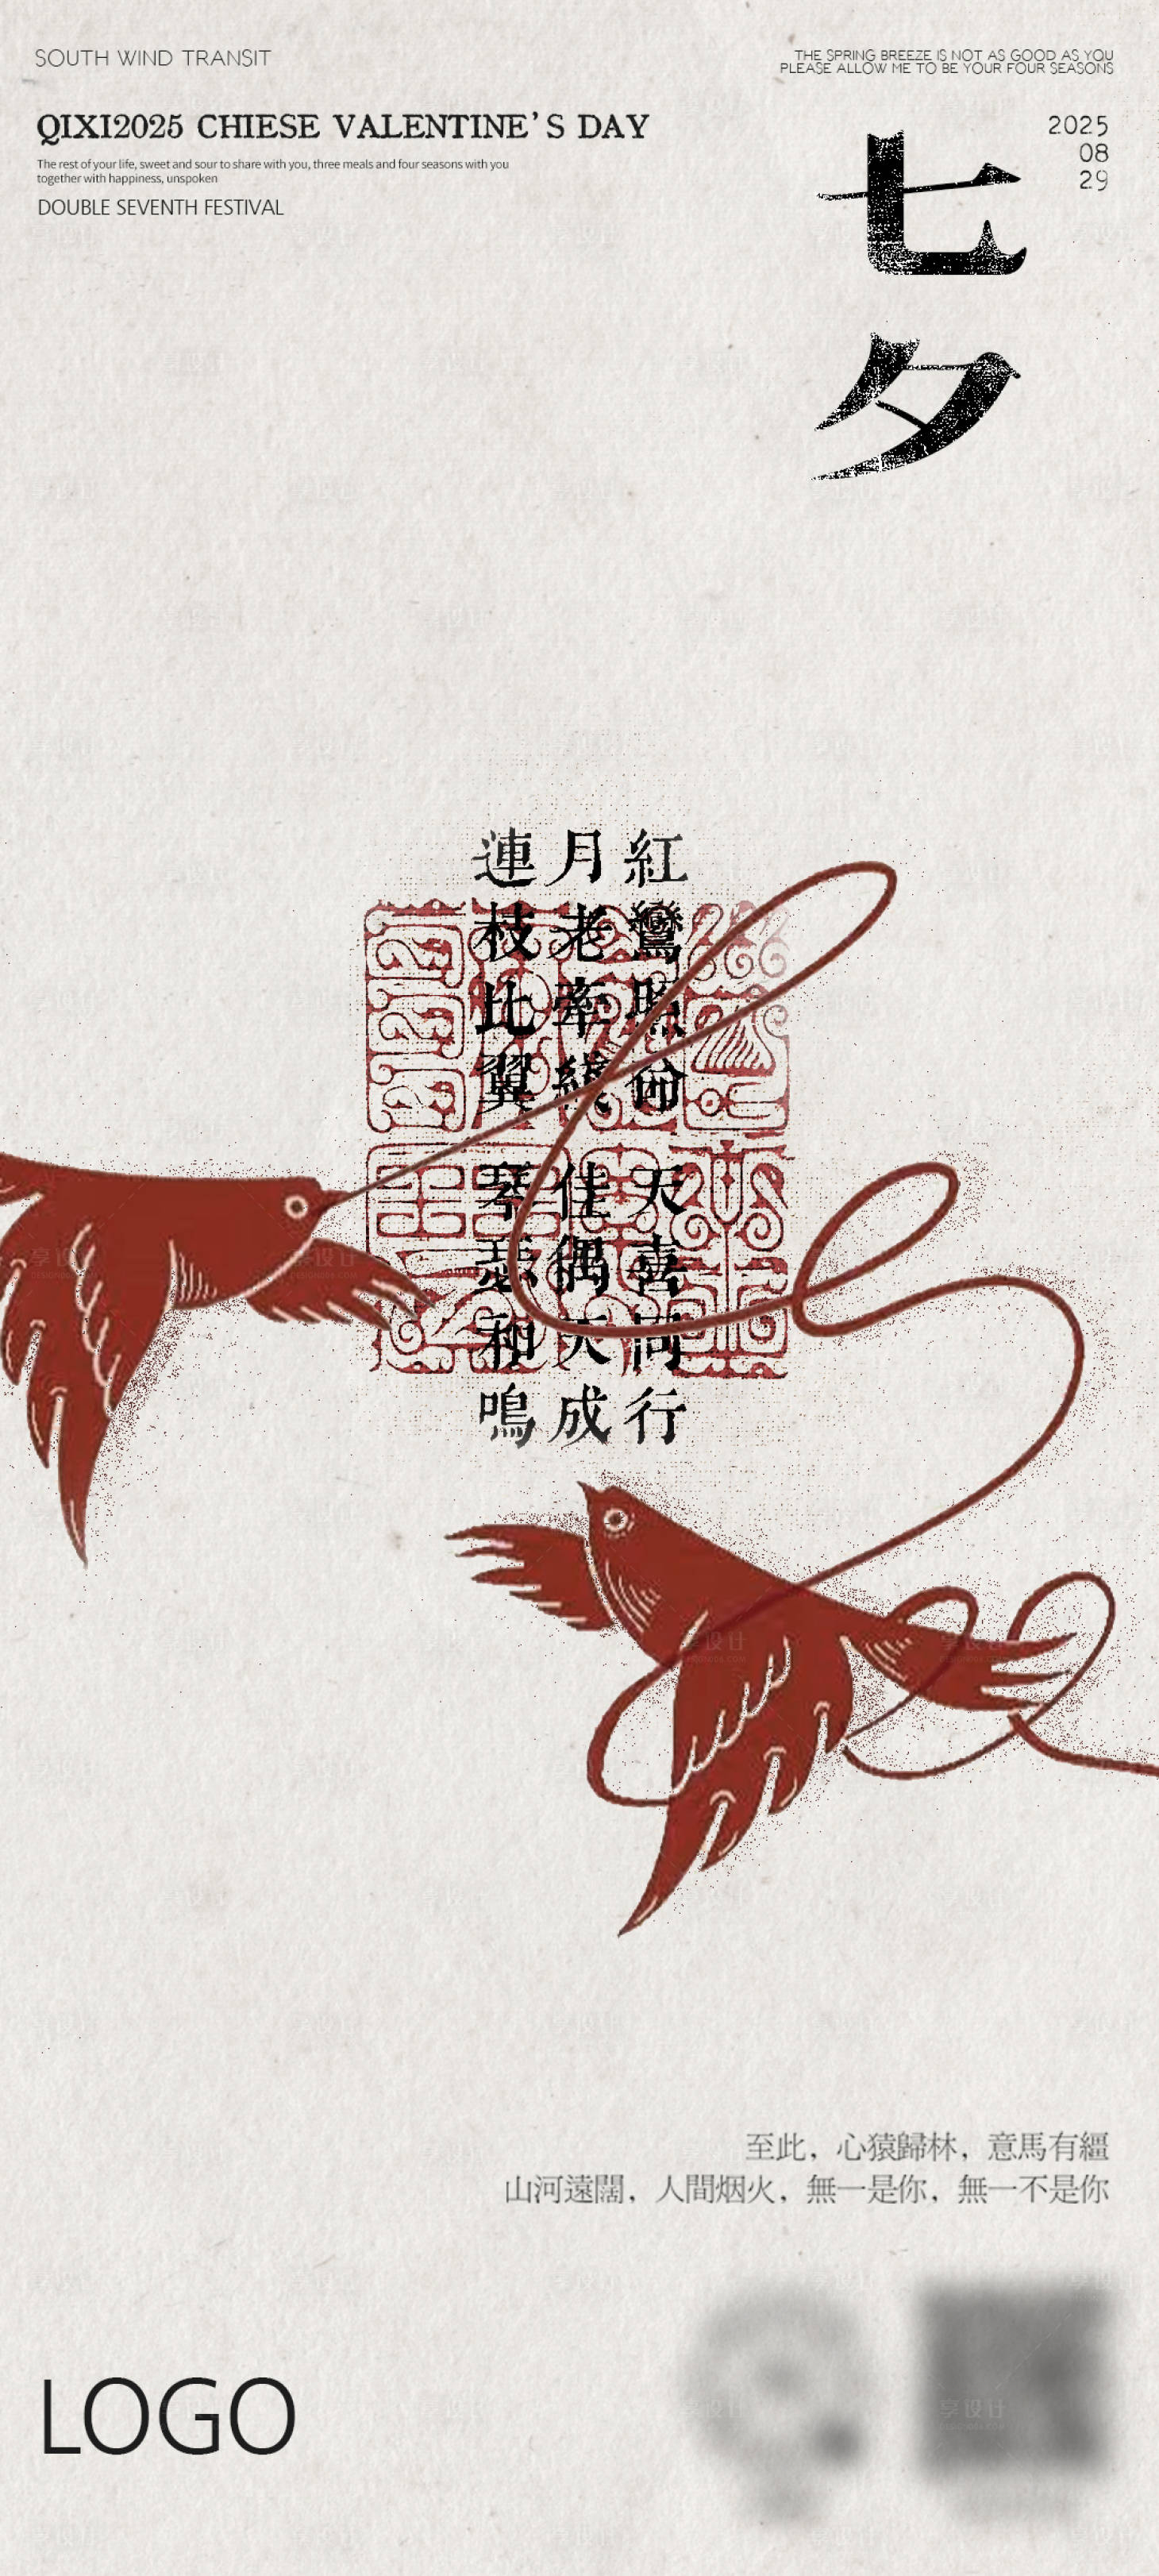 SOUTH WIND TRANSIT
THE SPRING BREEZE IS NOT AS GOOD AS YOU
PLEASE ALLOW ME TO BE YOUR FOUR SEASONS
QIXI2025 CHIESE VALENTINE'S DAY
The rest of your life, sweet and sour to share with you, three meals and four seasons with you
together with happiness, unspoken
DOUBLE SEVENTH FESTIVAL
2025
08
29
七夕
紅鸞照命 天喜同行
月老牽綫 佳偶天成
連枝比翼 琴瑟和鳴
至此，心猿歸林，意馬有繮
山河遠闊，人間烟火，無一是你，無一不是你
LOGO